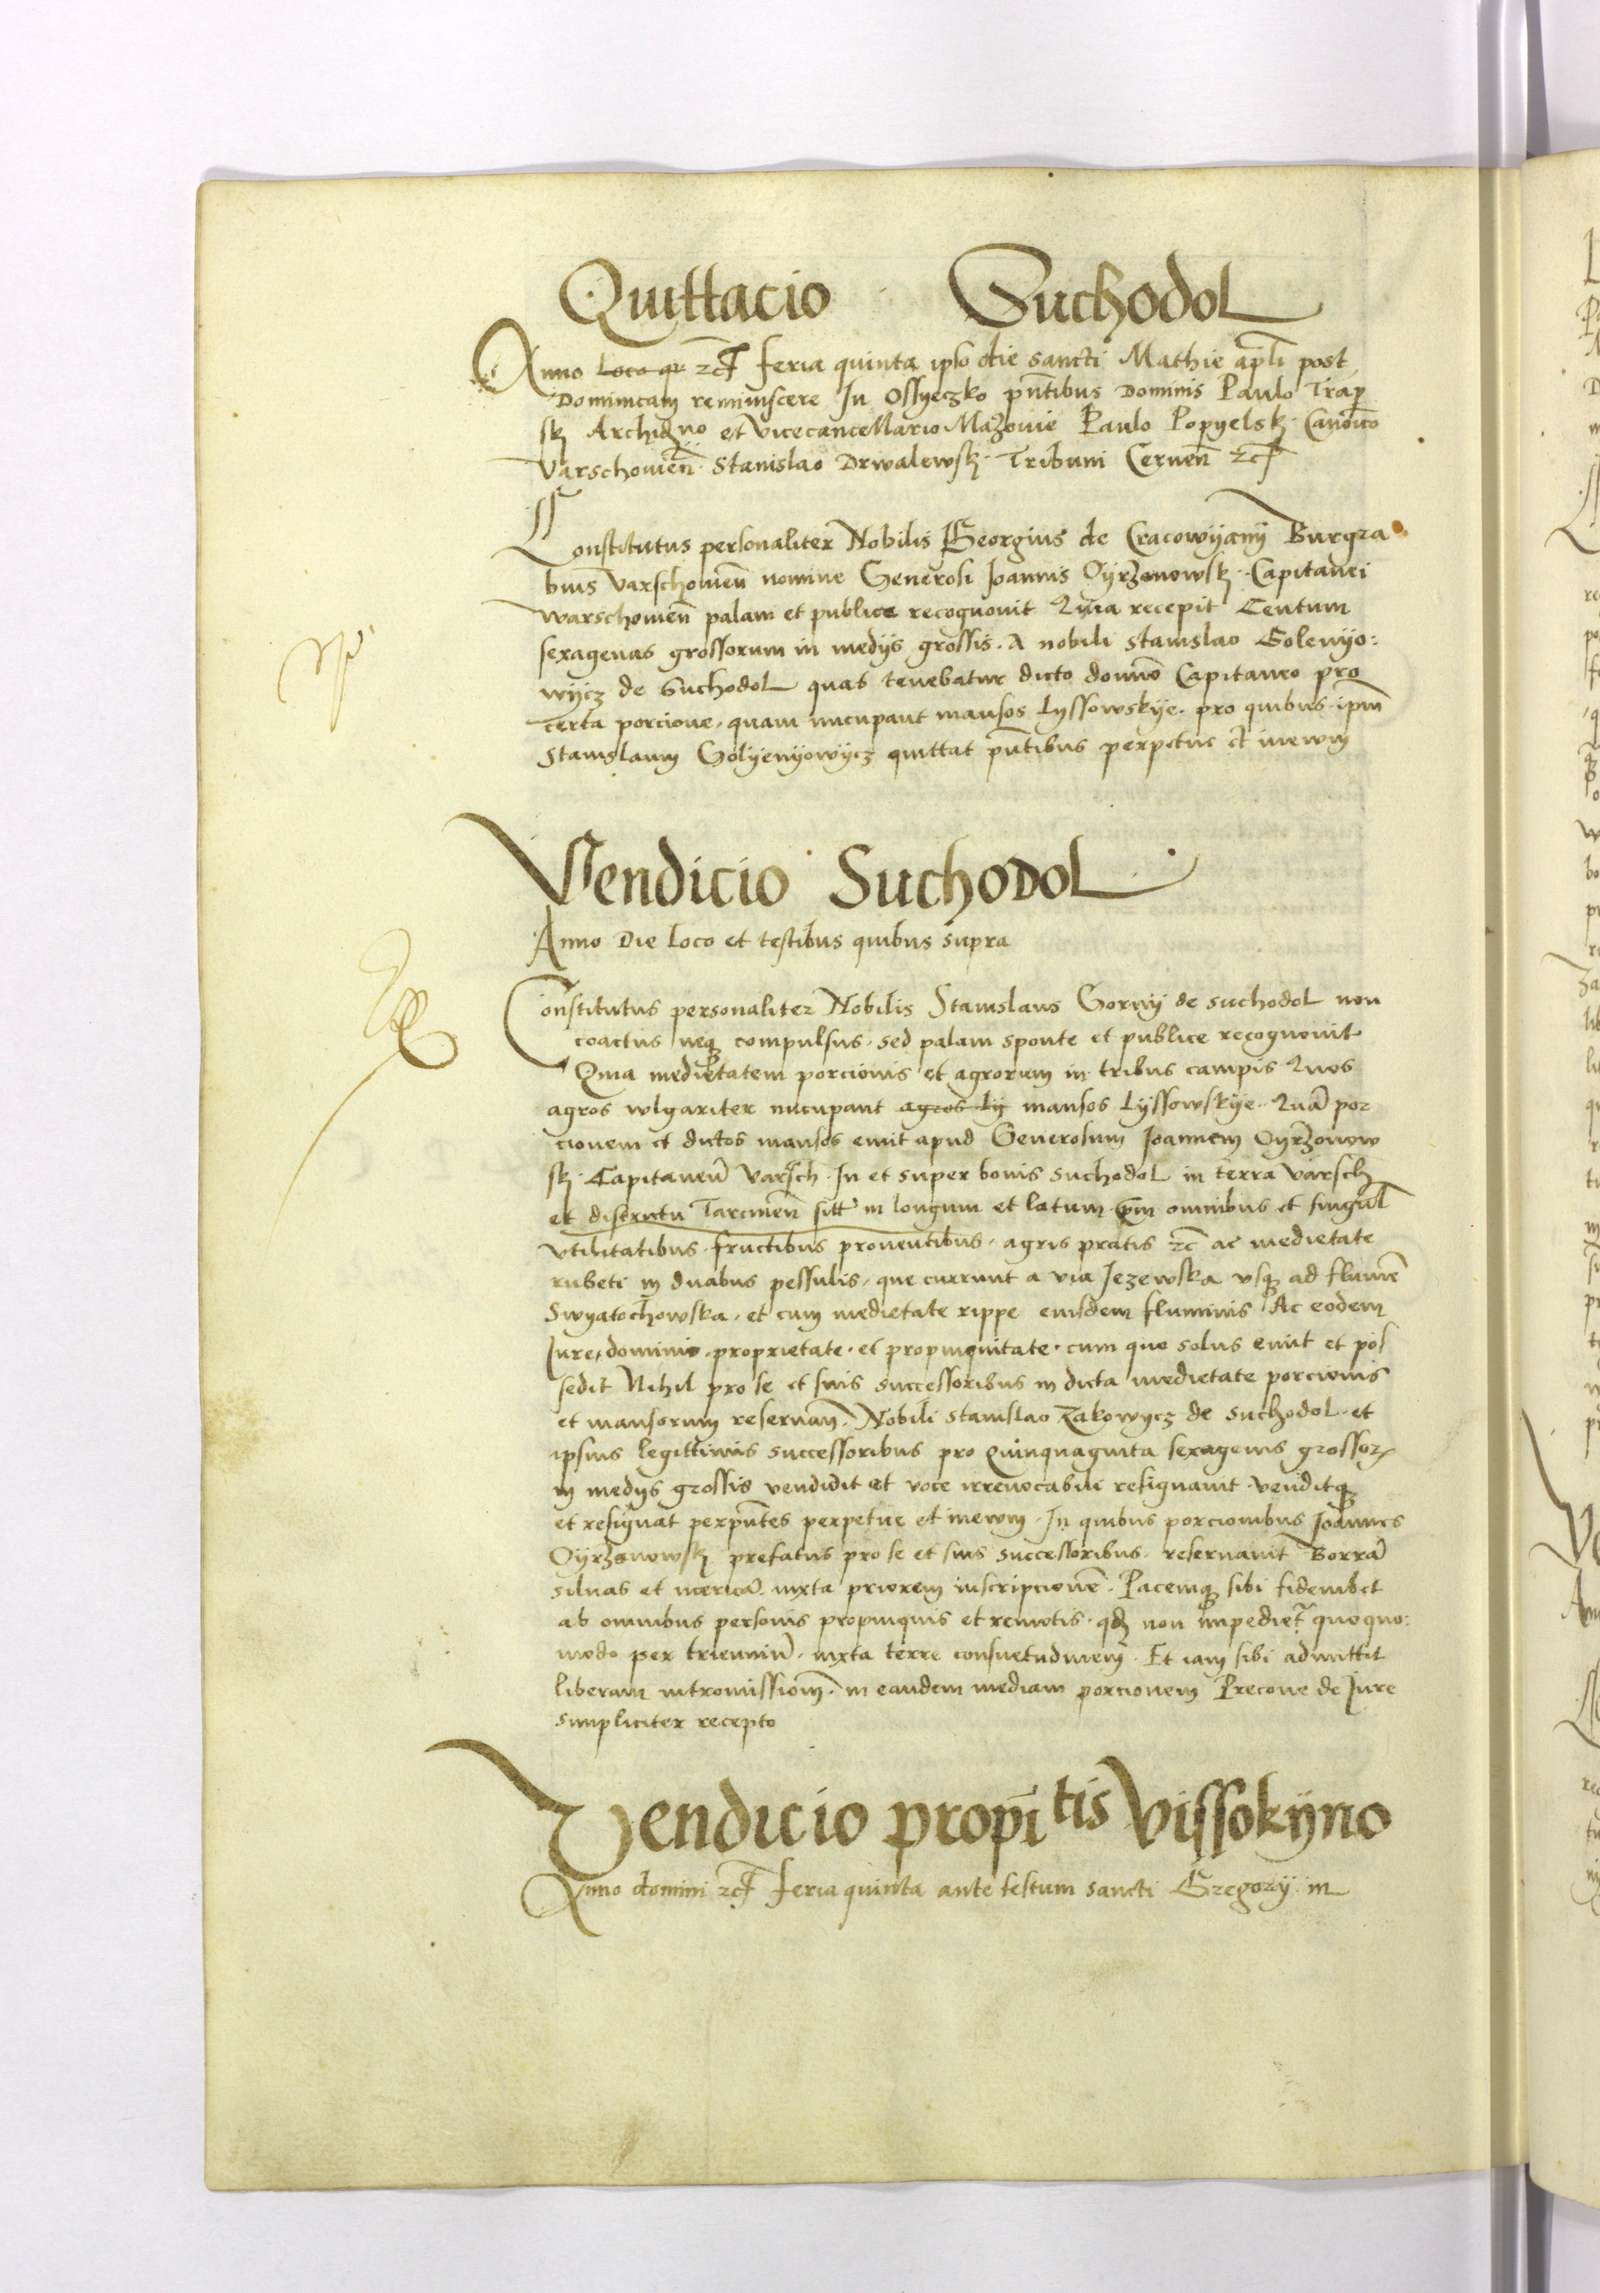 Quittacio Suchodol
Anno Loco qz zc feria quinta ipso die sancti Mathie apli post
Dominicam reminiscere In Ossyeczko pntibus Dominis Paulo Trap
sk Archidno et vicecancellario Mazovie Paulo Popyelsk Canonico
Varschovien Stanislao Drwalewsk Tribuni Cernen zc
Constitutus personaliter Nobilis Georgius de Cracowyany Burgra
bius Varschovien nomine Generosi Joannis Oyrzanowsk Capitanei
warschovien palam et publice recognovit Quia recepit Centum
sexagenas grossorum in medijs grossis. A nobili Stanislao Golenyo:
wycz de Suchodol quas tenebatur dicto domino Capitaneo pro
certa porcione, quam nucupant mansos Lyssowskye. pro quibus ipm
Stanislaum Golyenyowycz quittat pntibus perpetue et inewm
Vendicio Suchodol
Anno Die Loco et testibus quibus supra
Constitutus personaliter Nobilis Stanislaus Gorny de suchodol non
coactus neqz compulsus. sed palam sponte et publice recognovit
Quia medietatem porcionis et agrorum in tribus campis Quos
agros wlgariter nucupant agros Ly mansos Lyssowskye. Qua por
cionem et dictos mansos emit apud Generosum Joannem Oyrzonow
sk. Capitaneu Varsch. In et super bonis Suchodol in terra Varsch
et districtu Tarcinen sitt in longum et latum cum omnibus et singul
vtilitatibus. fructibus proventibus. agris pratis zc ac medietate
rubeti in duabus pessulis, que currunt a via Jezewska vsqz ad flume
Swyatochowska. et cum medietate rippe eiusdem fluminis Ac eodem
Iure, dominio. proprietate. et propinquitate. cum quo solus emit et pos
sedit Nihil pro se et suis successoribus in dicta medietate porcionis
et mansorum reservan. Nobili Stanislao Zakowycz de Suchodol. et
ipsius legittimis successoribus pro Quinquaginta sexagenis grossor
in medijs grossis vendidit et voce irrevocabili resignavit. venditqz
et resignat perpntes perpetue et inewm. In quibus porcionibus Joannes
Oyrzanowsk prefatus pro se et suis successoribus. reservavit Borra
silvas et mericа iuxta priorem inscripcione. Pacemqz sibi fideiubet
ab omnibus personis propinquis et remotis. qd non impediet quoquo:
modo per trienniu. iuxta terre consuetudinem. Et iam sibi admittit
liberam intromissiom. in eandem mediam porcionem Precone de Iure
simpliciter recepto
Vendicio propri tis Vissokyno
Anno domini zc feria quinta ante festum sancti Gregorij in